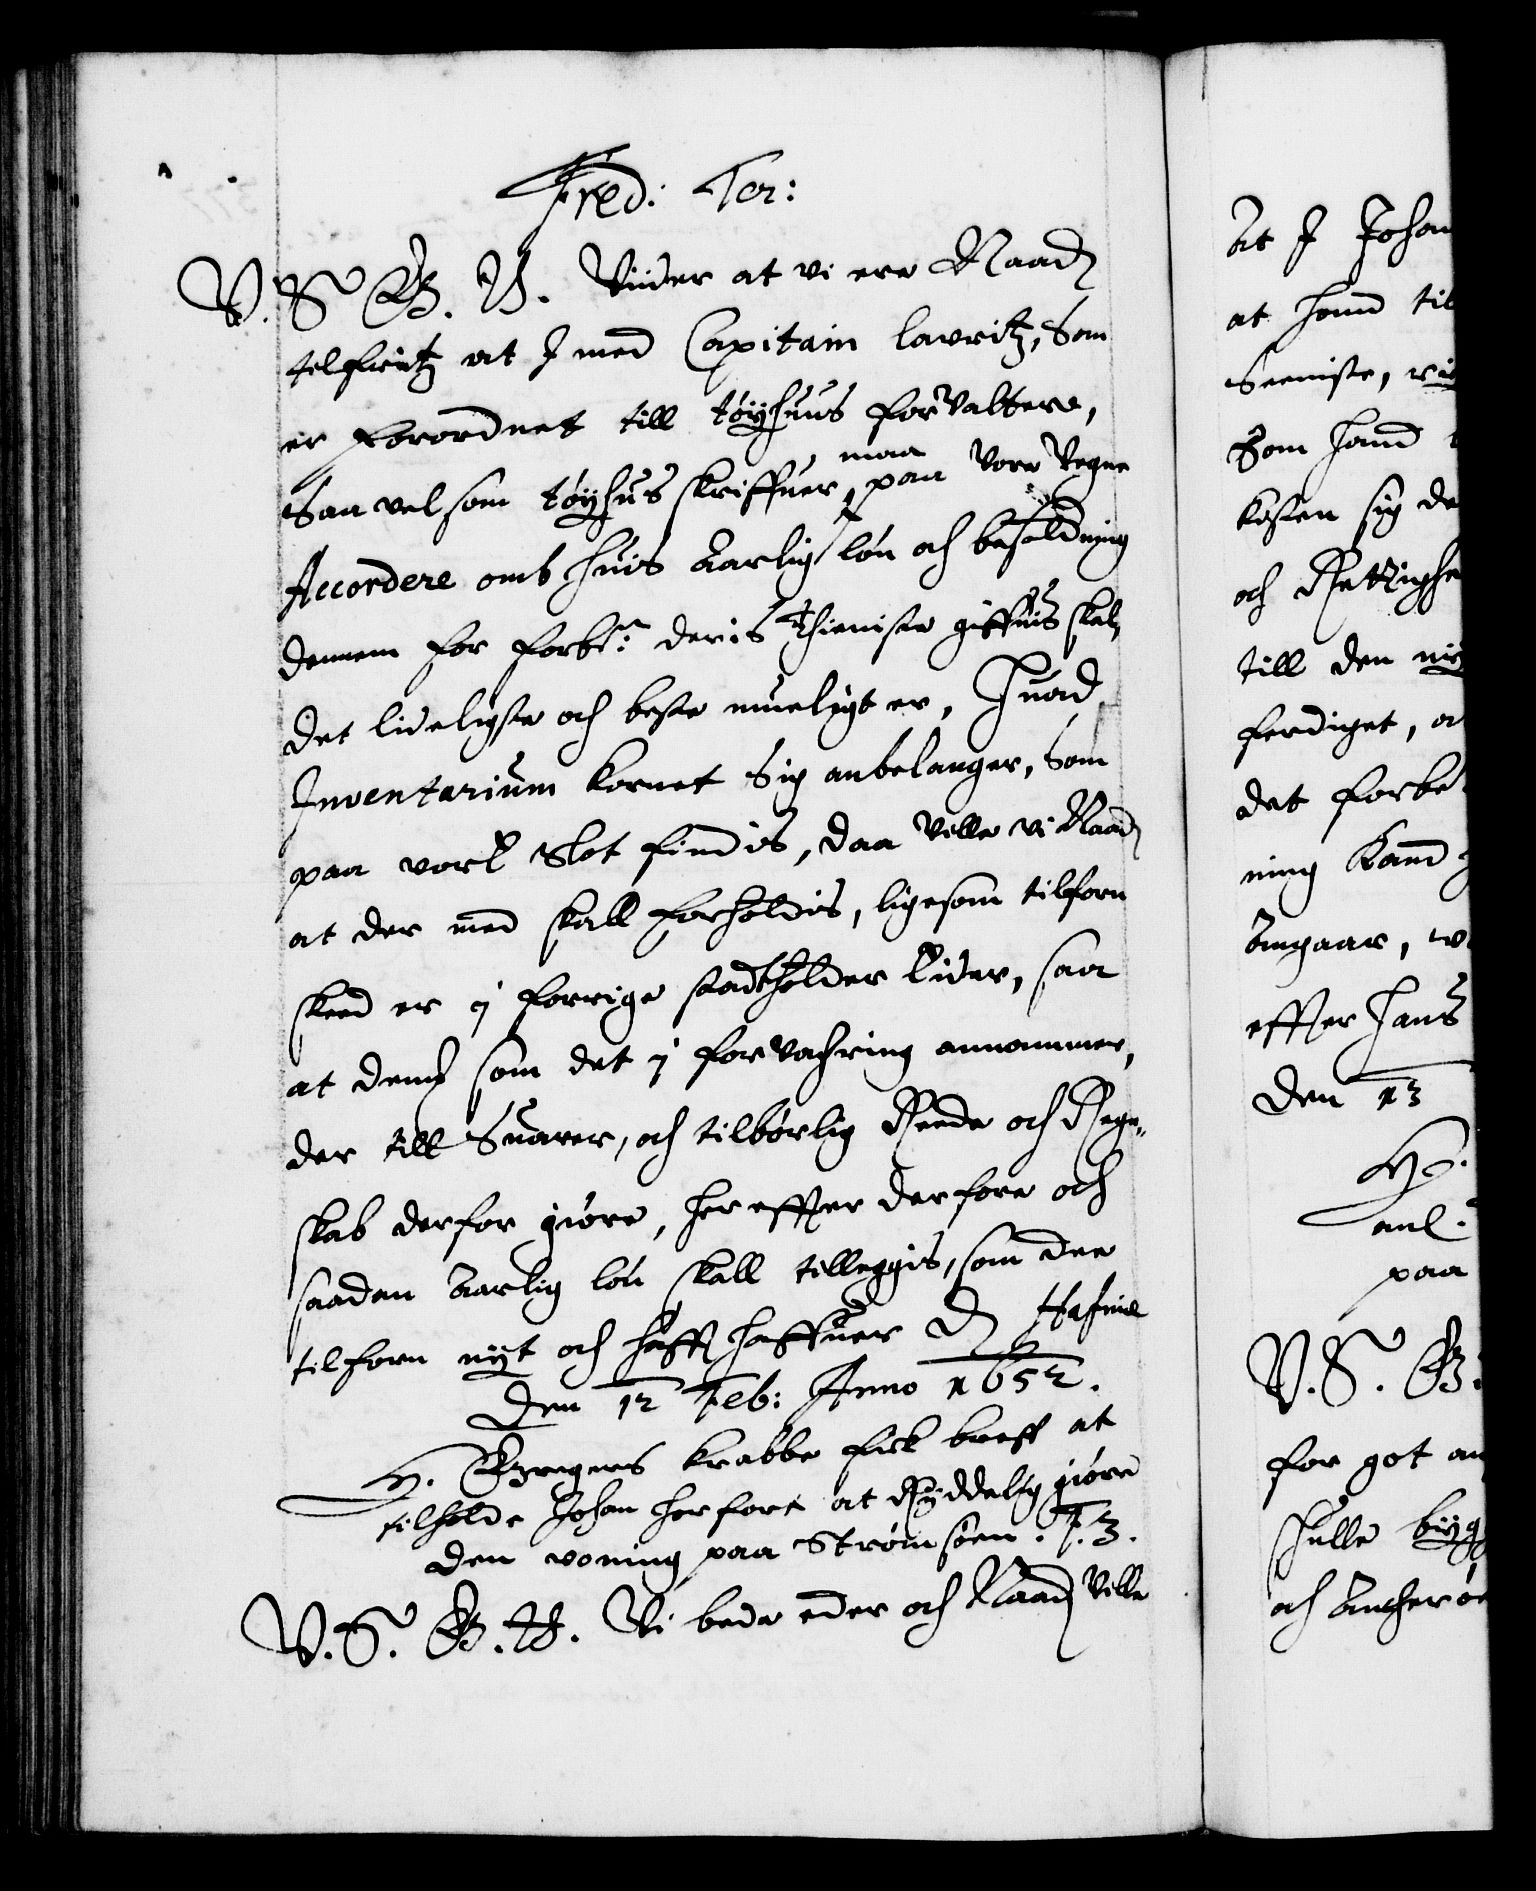 Fred: Ter:
V. S. G. V. Viider at vi ere Naad:
tilfrittz at I med Capitain lavritz, Som
er forordnet till tøyhuus forValtere,
Saa vel som tøyhus skriffuer, maa paa vore Vegne
Accordere omb huis Aarlig løn och besoldning
dennem for forbe:te deris thieniste giffuis skal,
det lideligste och beste mueligt er, Huad
Inventarium kornet Sig anbelanger, Som
paa vort Slot findis, daa Ville vi Naad:
at der med skall forholdis, ligesom tilforn
skeed er i forrige stadtholder tider, saa
at dend som det i forVahring annammer,
der till Suarer, och tilbørlig Reede och Regn-
skab derfor giøre, her effter derfore och
saaden Aarlig løn skall tilleggis, som dee
tilforn nyt och hafft haffuer D Hafniæ
Den 12 Feb: Anno 1652.
H. Gregers Krabbe fick breff at
tilholde Johan herfort at Ryddelig giøre
den voning paa Strømsøen. F. 3.
V. S. G. V. Vi bede eder och Naad: Ville
At I Johan
at hand til
Seeniste,
Som hand
kosten sig de
och Retzighe
till den ny
ferdiget,
det forbe
ning Kand
Angaar,
effter Hans
Den 13
H.
anl.
paa
V. S. G.
for got an
skulle byg
och